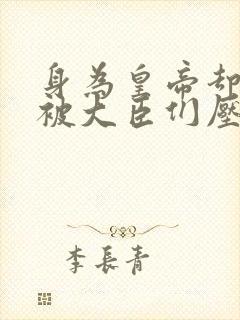 身為皇帝却
被大臣们壓
李長青